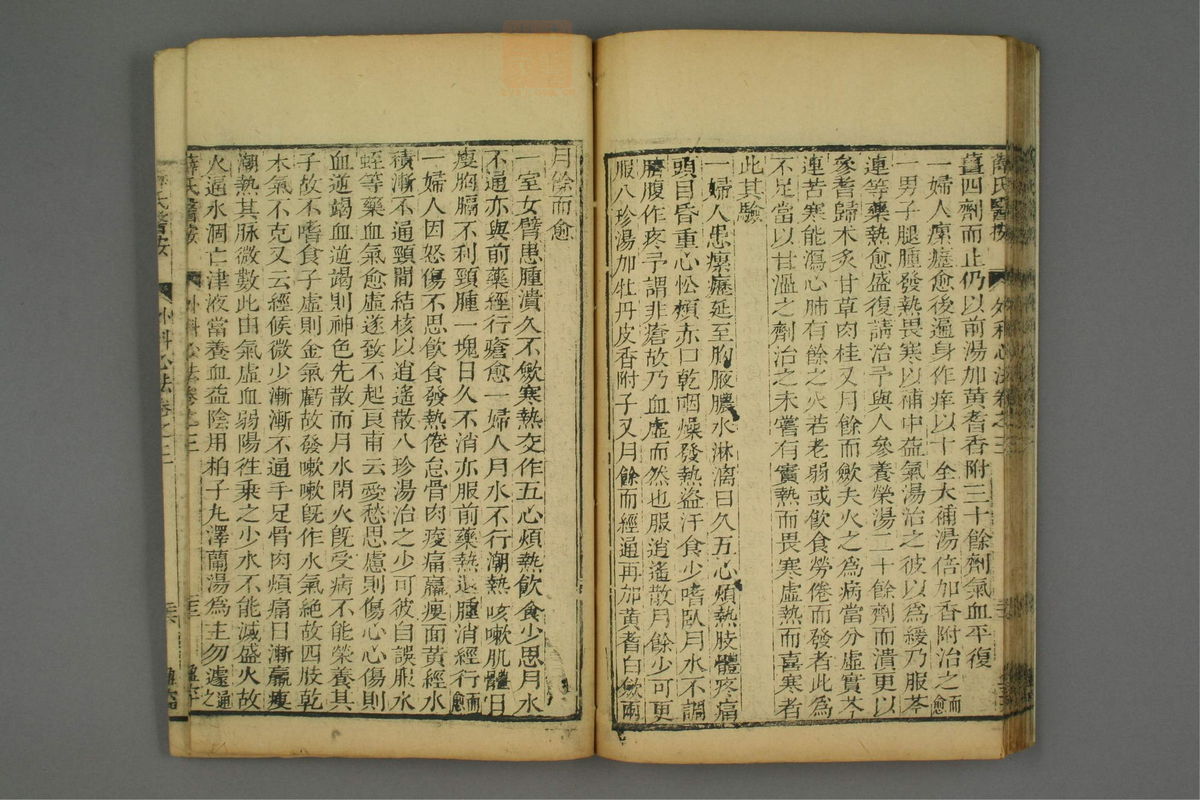 薛氏醫按　外科心法卷之三
舊四劑而止仍以前湯加黄耆香附三十餘劑氣血平復
一婦人瘰癧愈後遍身作痒以十全大補湯倍加香附治之而愈
一男子腿腫發熱畏寒以補中益氣湯治之彼以為緩乃服芩
連等藥熱愈盛復請治予與人參養榮湯二十餘劑而潰更以
參耆歸术炙甘草肉桂又月餘而歛夫火之為病當分虛實芩
連苦寒能瀉心肺有餘之火若老弱或飲食勞倦而發者此為
不足當以甘溫之劑治之未嘗有實熱而畏寒虛熱而喜寒者
此其驗
一婦人患瘰癧延至胸腋膿水淋漓日久五心煩熱肢體疼痛
頭目昏重心忪頰赤口乾咽燥發熱盜汗食少嗜臥月水不調
臍腹作疼予謂非瘡故乃血虛而然也服逍遙散月餘少可更
服八珍湯加牡丹皮香附子又月餘而經通再加黄耆白歛兩
月餘而愈
一室女臂患腫潰久不歛寒熱交作五心煩熱飲食少思月水
不通亦與前藥經行瘡愈一婦人月水不行潮熱咳嗽肌體日
瘦胸膈不利頸腫一塊日久不消亦服前藥熱退腫消經行而愈
一婦人因怒傷不思飲食發熱倦怠骨肉痠痛羸瘦面黄經水
積漸不通頸間結核以逍遙散八珍湯治之少可彼自誤服水
蛭等藥血氣愈虛遂致不起良甫云憂愁思慮則傷心心傷則
血逆竭血逆竭則神色先散而月水閉火旣受病不能榮養其
子故不嗜食子虛則金氣虧故發嗽嗽旣作水氣絶故四肢乾
木氣不克又云經候微少漸漸不通手足骨肉煩痛日漸羸瘦
潮熱其脉微數此由氣虛血弱陽徃乗之少水不能減盛火故
火逼水涸亡津液當養血益陰用柏子丸澤蘭湯為主勿遽通之
薛氏醫按　外科心法卷之三